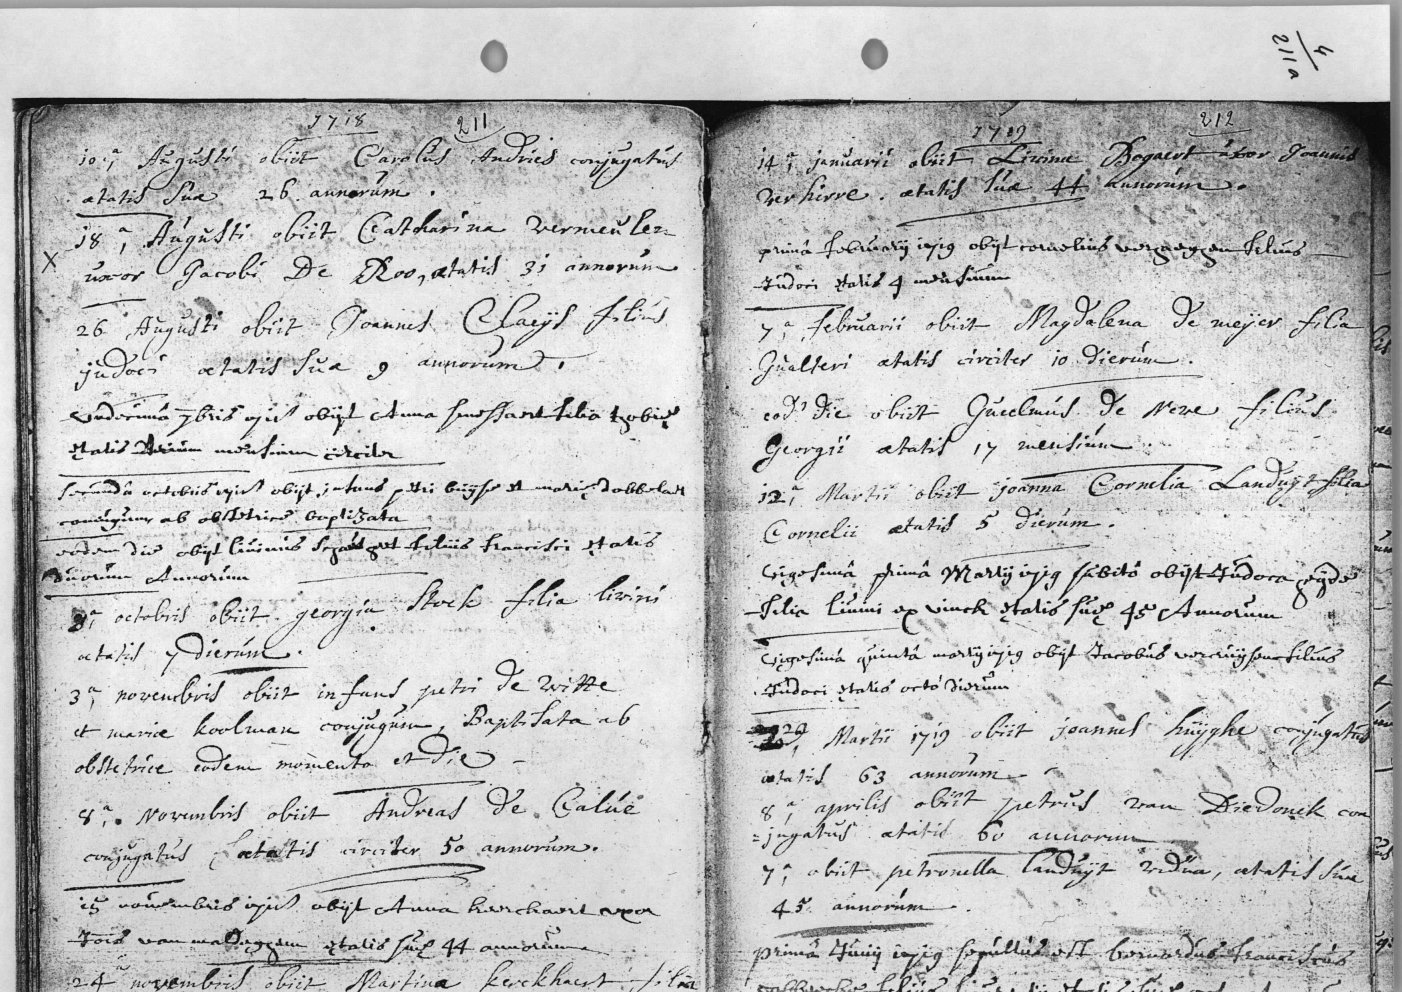 4
211a
1718
211
10,a Augusti obiit Carolus Andries conjugatus
ætatis suæ 26 annorum.
18,a Augusti obiit Catharina vermeulen
X
uxor Jacobi De Roo, ætatis 31 annorum
26 Augusti obiit Joannes Claeÿs filius
judoci ætatis sua 9 annorum.
undecima 7bris 1718 obijt Anna filia
ætatis trium mensium circiter
secunda octobris 1718 obijt infans petri buÿse et mariæ dobbelaer
conjugum ab obstetrice baptizata
eodem die obijt livinus filius francisci ætatis
duorum Annorum
8,a octobris obiit georgia stock filia livini
ætatis 7 dierum.
3,a novembris obiit infans petri de witte
et mariæ koolman conjugum, Baptisata ab
obstetrice eodem momento et Die
8,a. Novembris obiit Andreas De Caluë
conjugatus ætatis circiter 50 annorum.
15 novembris 1718 obijt Anna kerckaert uxor
Jois van maldegem ætatis suæ 44 annorum
24,a novembris obiit Martina kerckhaert filia
1719
212
14,a januarii obiit Livina Bogaert uxor Joannis
verhirre. ætatis suæ 44 annorum.
prima februarij 1719 obijt cornelius filius
Judoci ætatis 4 mensium
7,a februarii obiit Magdalena De meijer filia
Gualteri ætatis circiter 10 dierum.
eod: die obiit Guielmus De Neve filius
Georgii ætatis 17 mensium
12,a Martii obiit joanna Cornelia Landuÿt filia
Cornelii ætatis 5 dierum.
vigesima prima Martij 1719 subito obijt Judoca
filia livini ex vinck ætatis suæ 45 Annorum
vigesima quinta martij 1719 obijt Jacobus vercruÿsen filius
Judoci ætatis octo dierum
29, Martii 1719 obiit joannes huÿghe conjugatus
ætatis 63 annorum
8,a aprilis obiit petrus van Diedonck con
=jugatus ætatis 60 annorum
7,a obiit petronella landuÿt vidua, ætatis suæ
45 annorum.
prima Junij 1719 sepultus est bernardus franciscus
filius